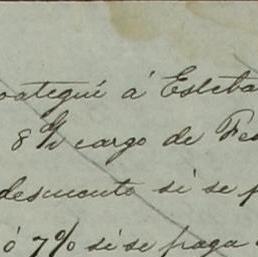 oategui á Esteba
8% cargo de Fe
desmonte si se p
ó 7% si se paga